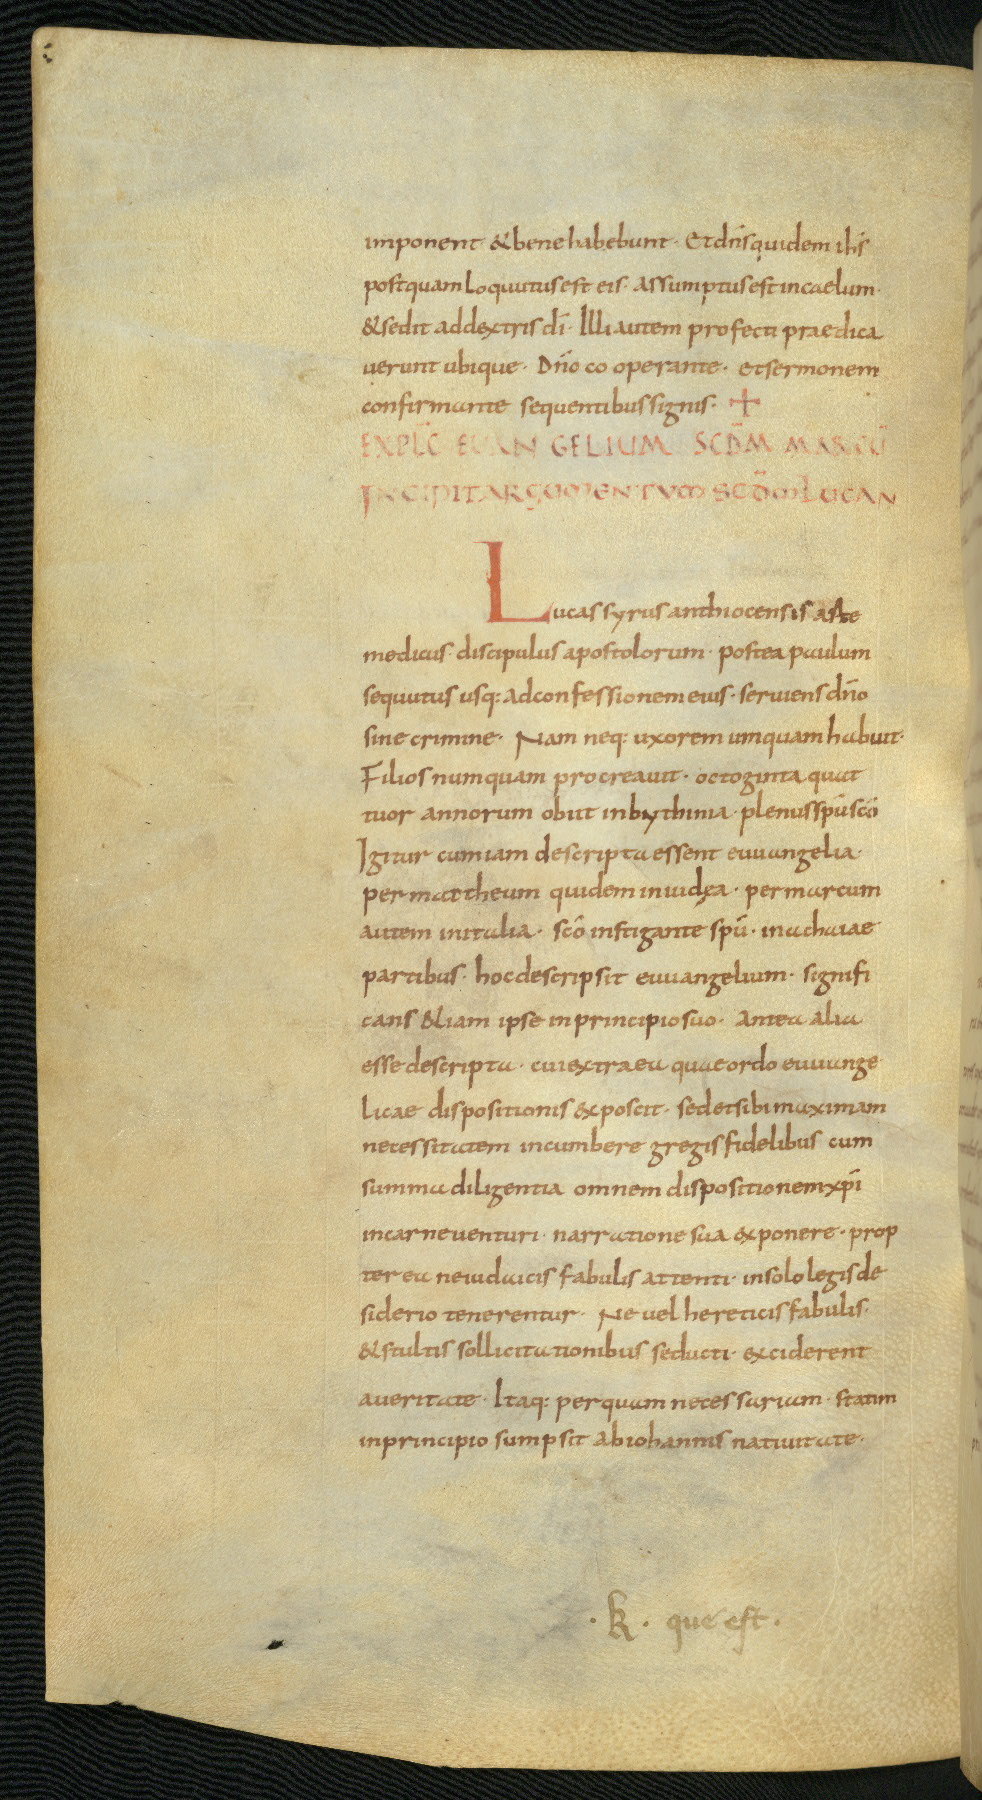 imponent & bene habebunt · Et dn̄s quidem ih̄s
postquam loquutus est eis · assumptus est in caelum ·
& sedit ad dextris dī · Illi autem profecti praedica
uerunt ubique · Dn̄o co operante · et sermonem
confirmante sequentibus signis · +
EXPLC̄ EUANGELIUM SCD̄M MARCŪ
INCIPIT ARGUMENTUM SECD̄M LUCAN
Lucas syrus anthiocensis arte
medicus · discipulus apostolorum · postea paulum
sequutus usq: ad confessionem eius · seruiens dn̄o
sine crimine · Nam neq: uxorem umquam habuit ·
Filios numquam procreauit · octoginta quat
tuor annorum obiit in bythinia · plenus spū scō
Igitur cum iam descripta essent euuangelia ·
per mattheum quidem in iudea · per marcum
autem in italia · scō instigante spū · in achaiae
partibus · hoc descripsit euuangelium · signifi
cans &iam ipse in principio suo · Antea alia
esse descripta · cui extra ea quae ordo euuange
licae dispositionis exposcit · sed et sibi maximam
necessitatem incumbere gregis fidelibus cum
summa diligentia omnem dispositionem xp̄i
in carne uenturi · narratione sua exponere · prop
ter ea ne iudaicis fabulis attenti · in solo legis de
siderio tenerentur · Ne uel hereticis fabulis ·
& stultis sollicitationibus seducti · exciderent
a ueritate · Itaq: per quam necessarium · statim
in principio sumpsit ab iohannis natiuitate ·
· k · que est ·